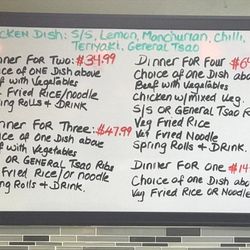 CKEN DISH: S/S, Lemon, Manchurian, Chilli,
Teriyaki, General Tsao
nner For Two: $34.99
ce of one Dish above
f with Vegetables
Fried Rice/noodle
ing Rolls & Drink.
nner For Three: $47.99
ce of one Dish above
f with Vegetables
or General Tsao Ribs
Fried Rice/or noodle
ng Rolls & Drink.
Dinner For Four $6
Choice of one Dish abo
Beef with Vegetables
Chicken w/mixed Veg.
S/S or General Tsao
Veg Fried Rice
Veg Fried Noodle
Spring Rolls & Drink.
Dinner For one $14
Choice of one Dish abo
Veg Fried Rice or Noodle